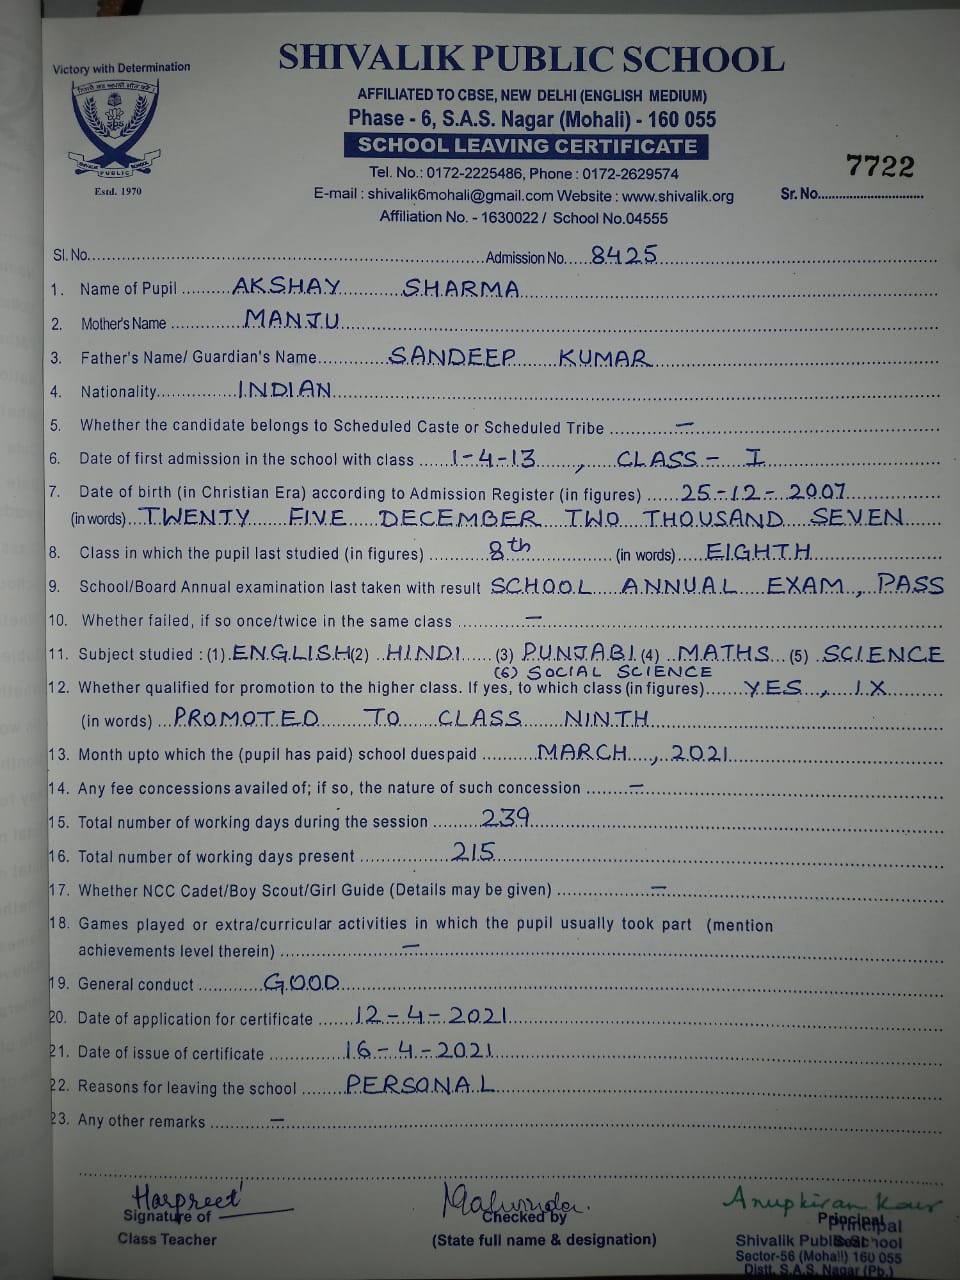 Victory with Determination
SHIVALIK PUBLIC SCHOOL
AFFILIATED TO CBSE, NEW DELHI (ENGLISH MEDIUM)
Phase - 6, S.A.S. Nagar (Mohali) - 160 055
SCHOOL LEAVING CERTIFICATE
SPS
SHIVALIK PUBLIC SCHOOL
Estd. 1970
Tel. No.: 0172-2225486, Phone : 0172-2629574
E-mail : shivalik6mohali@gmail.com Website : www.shivalik.org
Affiliation No. - 1630022 / School No.04555
7722
Sr. No.
Sl. No. Admission No. 8425
1. Name of Pupil AKSHAY SHARMA
2. Mother's Name MANJU
3. Father's Name/ Guardian's Name SANDEEP KUMAR
4. Nationality INDIAN
5. Whether the candidate belongs to Scheduled Caste or Scheduled Tribe —
6. Date of first admission in the school with class 1-4-13, CLASS - I
7. Date of birth (in Christian Era) according to Admission Register (in figures) 25-12-2007
(in words) TWENTY FIVE DECEMBER TWO THOUSAND SEVEN
8. Class in which the pupil last studied (in figures) 8th (in words) EIGHTH
9. School/Board Annual examination last taken with result SCHOOL ANNUAL EXAM, PASS
10. Whether failed, if so once/twice in the same class —
11. Subject studied : (1) ENGLISH (2) HINDI (3) PUNJABI (4) MATHS (5) SCIENCE
(6) SOCIAL SCIENCE
12. Whether qualified for promotion to the higher class. If yes, to which class (in figures) YES, IX
(in words) PROMOTED TO CLASS NINTH
13. Month upto which the (pupil has paid) school duespaid MARCH, 2021
14. Any fee concessions availed of; if so, the nature of such concession —
15. Total number of working days during the session 239
16. Total number of working days present 215
17. Whether NCC Cadet/Boy Scout/Girl Guide (Details may be given) —
18. Games played or extra/curricular activities in which the pupil usually took part (mention
achievements level therein) —
19. General conduct GOOD
20. Date of application for certificate 12-4-2021
21. Date of issue of certificate 16-4-2021
22. Reasons for leaving the school PERSONAL
23. Any other remarks —
Harpreet
Anupkiran Kaur
Signature of
Class Teacher
Checked by
(State full name & designation)
Principal
Principal
Seal
Shivalik Public School
Sector-56 (Mohali) 160 055
Distt. S.A.S. Nagar (Pb.)